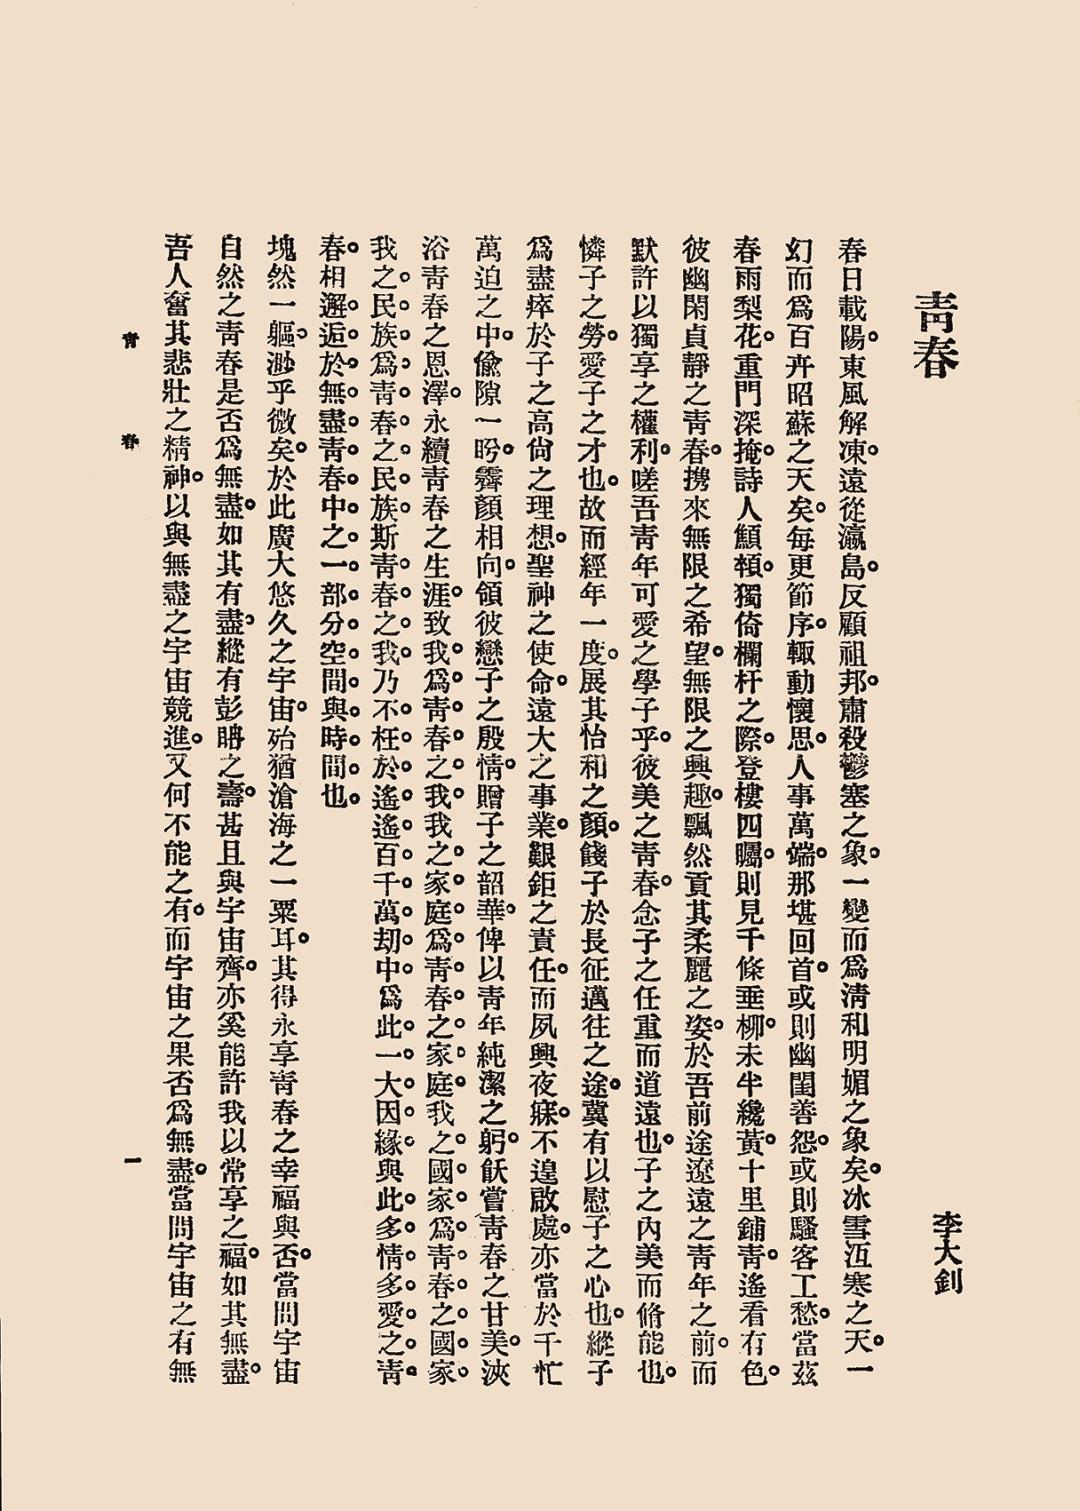 靑春
李大釗
春日載陽。東風解凍。遠從瀛島。反顧祖邦。肅殺鬱塞之象。一變而爲淸和明媚之象矣。冰雪沍寒之天。一
幻而爲百卉昭蘇之天矣。每更節序。輒動懷思。人事萬端。那堪回首。或則幽閨善怨。或則騷客工愁。當茲
春雨梨花。重門深掩。詩人顦顇。獨倚欄杆之際。登樓四矚。則見千條垂柳。未半纔黃。十里鋪靑。遙看有色。
彼幽閑貞靜之靑春。携來無限之希望。無限之興趣。飄然貢其柔麗之姿。於吾前途遼遠之靑年之前。而
默許以獨享之權利。嗟吾靑年可愛之學子乎。彼美之靑春。念子之任重而道遠也。子之內美而脩能也。
憐子之勞。愛子之才也。故而經年一度。展其怡和之顏。餞子於長征邁往之途。冀有以慰子之心也。縱子
爲盡瘁於子之高尙之理想。聖神之使命。遠大之事業。艱鉅之責任。而夙興夜寐。不遑啟處。亦當於千忙
萬迫之中。偷隙一盻。霽顏相向。領彼戀子之殷情。贈子之韶華。俾以靑年純潔之躬。飫嘗靑春之甘美。浹
浴靑春之恩澤。永續靑春之生涯。致我爲靑春之我我之家庭爲靑春之家庭我之國家爲靑春之國家
我之民族爲靑春之民族斯靑春之我乃不枉於遙遙百千萬劫中爲此一大因緣與此多情多愛之靑
春相邂逅於無盡靑春中之一部分空間與時間也。
塊然一軀。渺乎微矣。於此廣大悠久之宇宙。殆猶滄海之一粟耳。其得永享靑春之幸福與否。當問宇宙
自然之靑春是否爲無盡。如其有盡。縱有彭聃之壽。甚且與宇宙齊。亦奚能許我以常享之福。如其無盡。
吾人奮其悲壯之精神。以與無盡之宇宙競進。又何不能之有。而宇宙之果否爲無盡。當問宇宙之有無
靑春
一